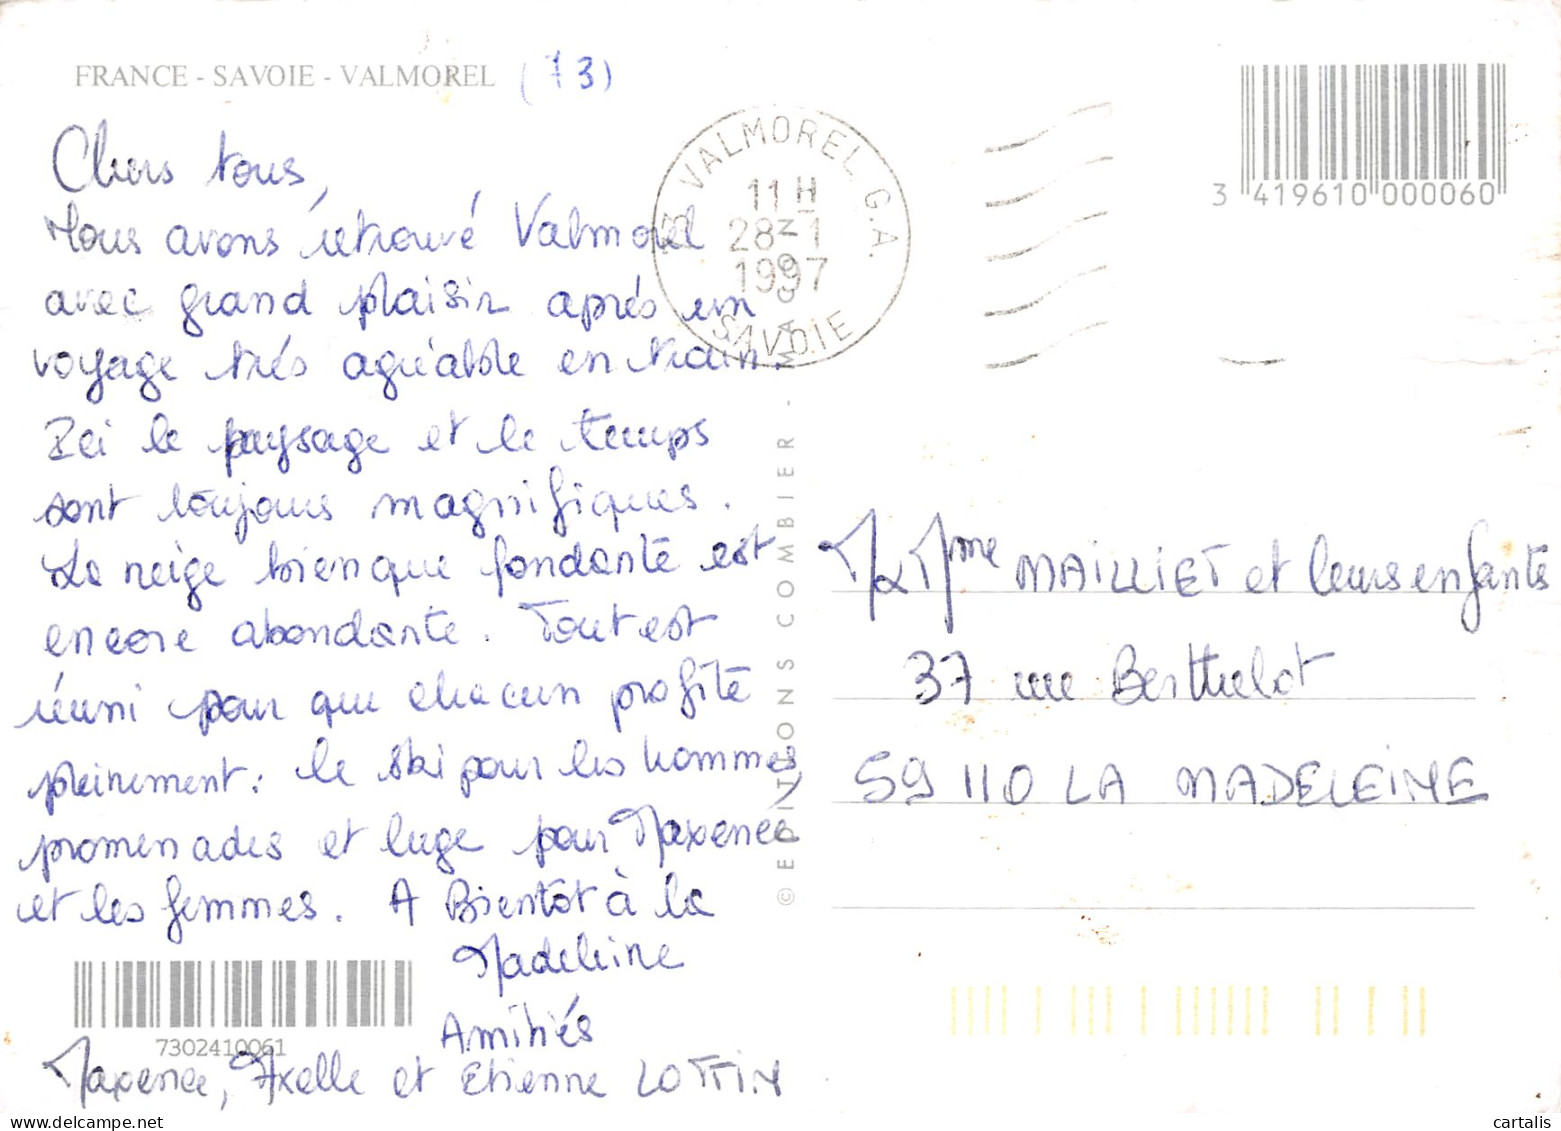 FRANCE - SAVOIE - VALMOREL (73)
Chers tous,
Nous avons retrouvé Valmorel
avec grand plaisir après un
voyage très agréable en train
Ici le paysage et le temps
sont toujours magnifiques.
La neige bien que fondante est
encore abondante. Tout est
réuni pour que chacun profite
pleinement: le ski pour les hommes,
promenades et luge pour Maxence
et les femmes. A Bientôt à la
Madeleine
Amitiés
Maxence, Axelle et Etienne LOTTIN
7302410061
73 VALMOREL G.A.
11 H
28-1
1997
SAVOIE
© EDITIONS COMBIER - MACON
3 419610 000060
M & Mme MAILLIET et leurs enfants
37 rue Berthelot
59 110 LA MADELEINE
cartalis